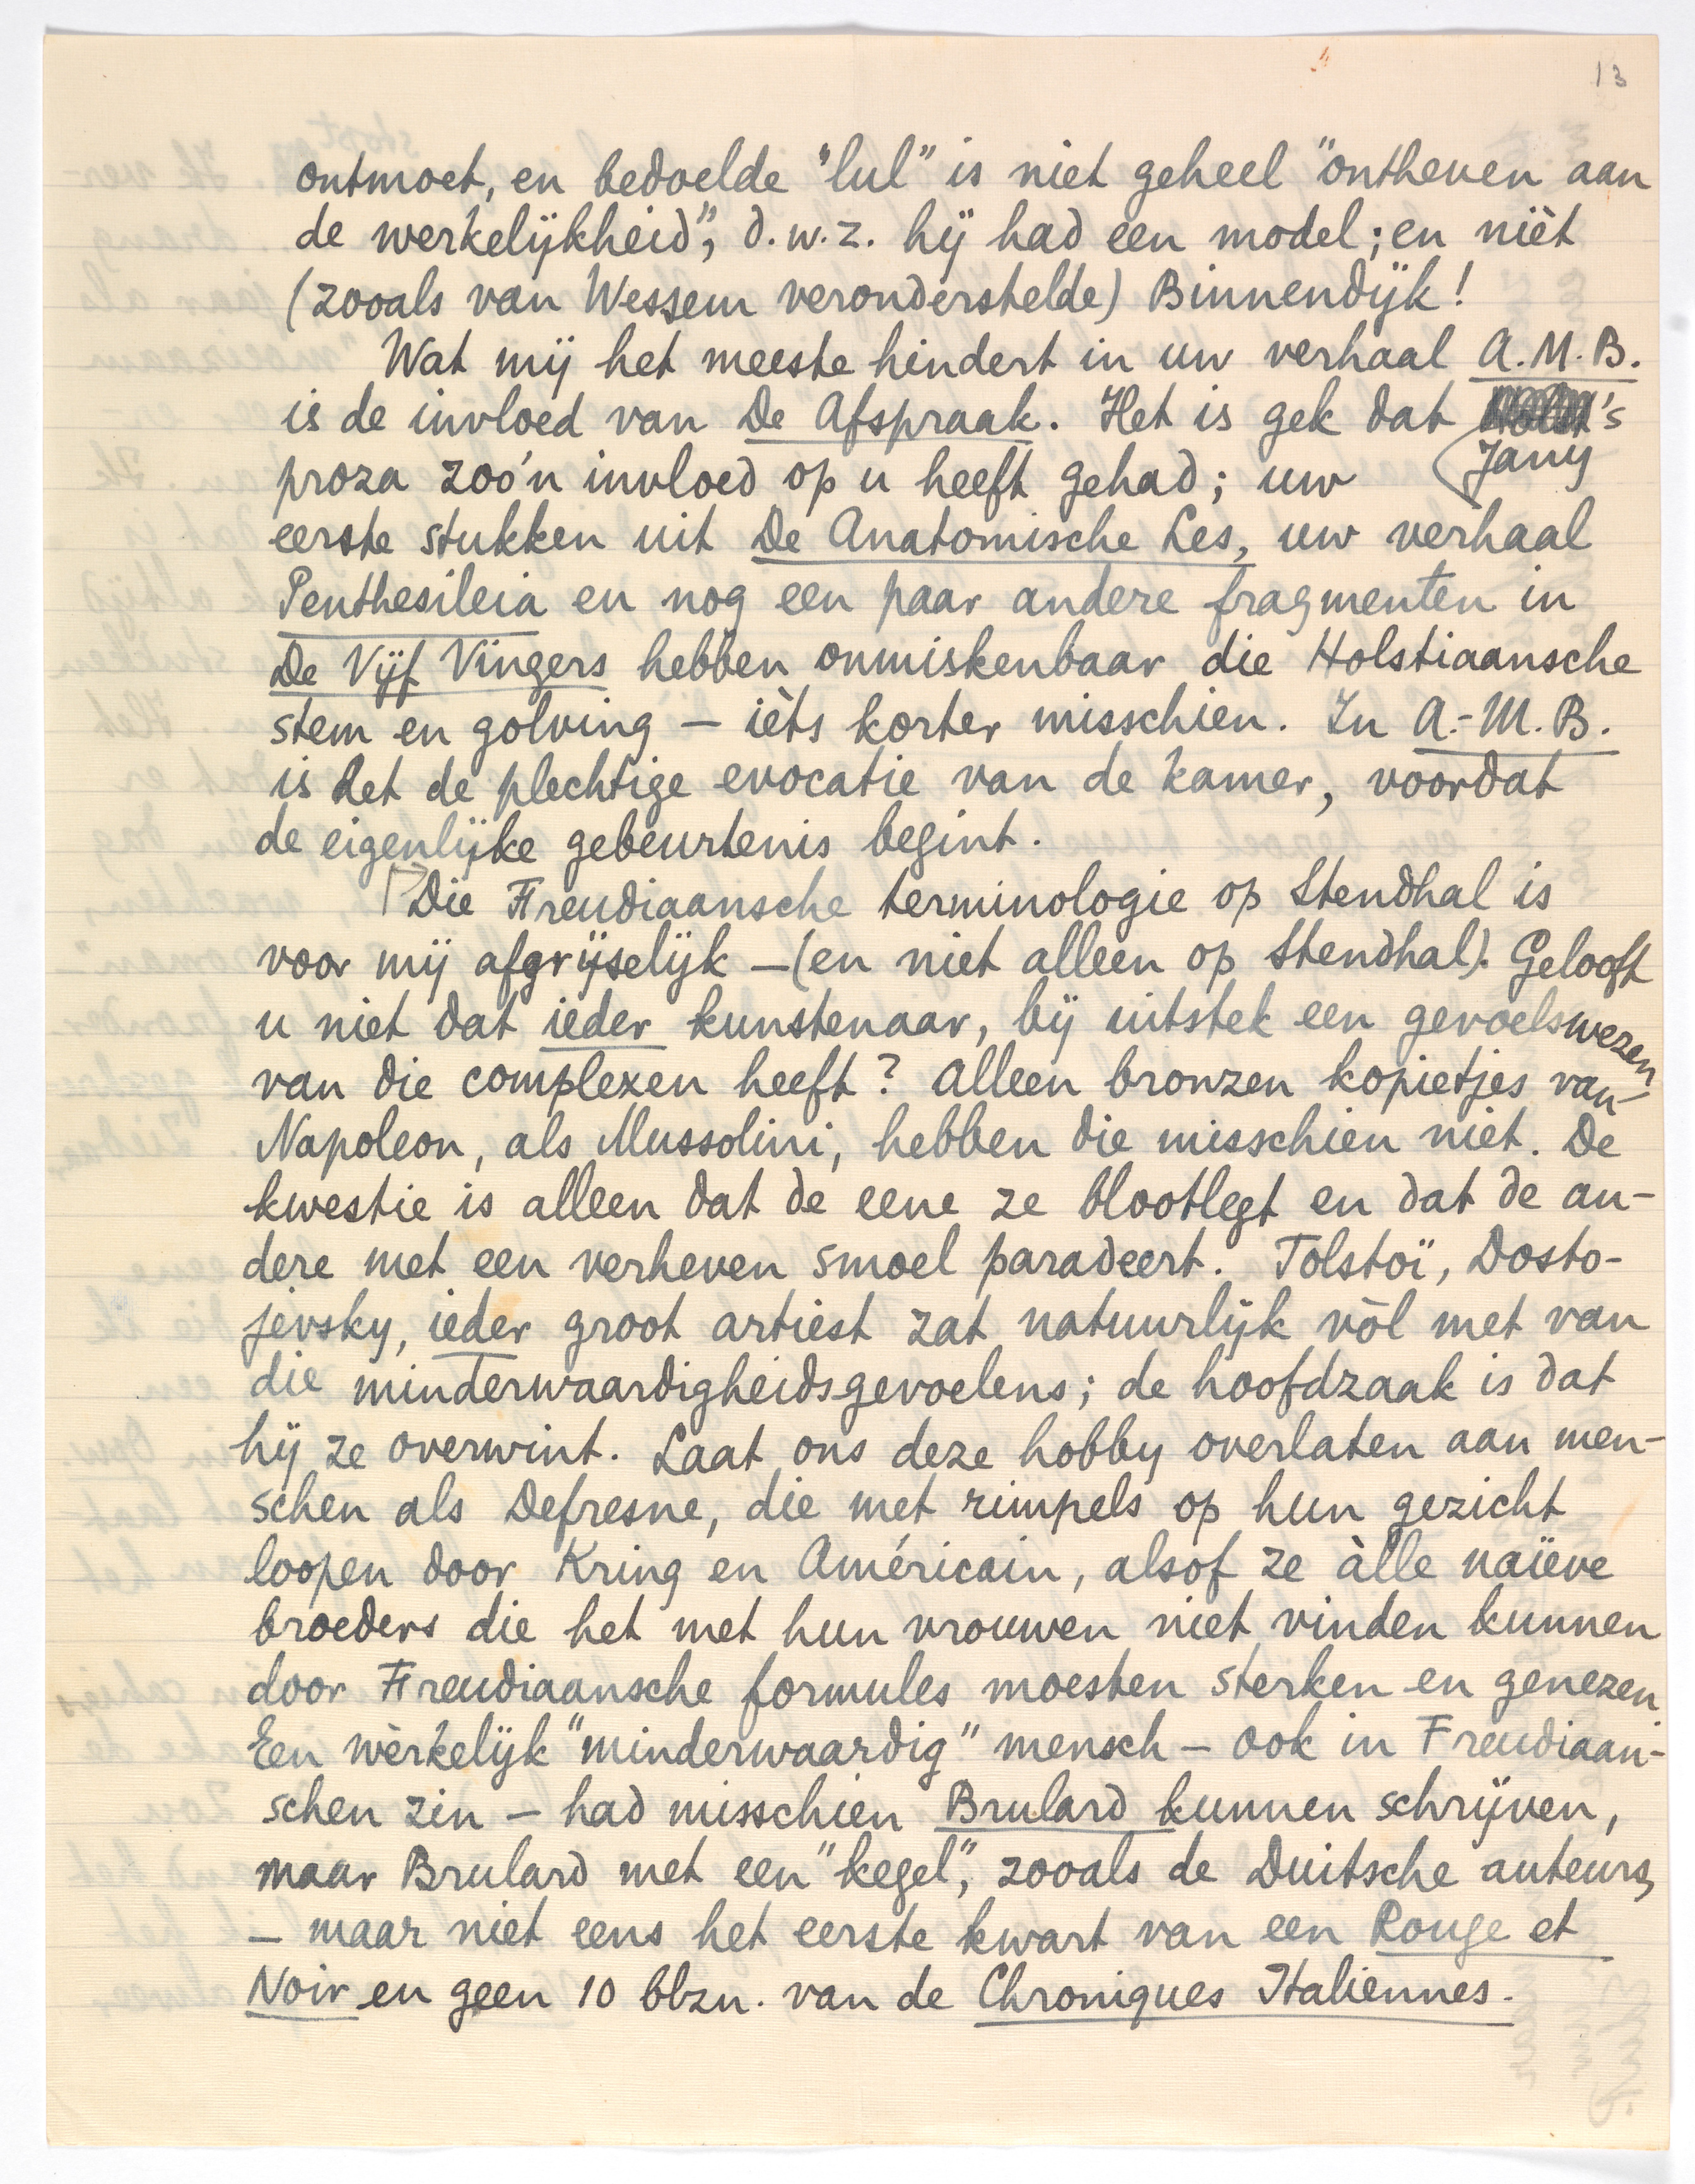 13
ontmoet, en bedoelde "lul" is niet geheel "ontheven aan
de werkelijkheid", d.w.z. hij had een model; en nièt
(zooals van Wessem veronderstelde) Binnendijk!
Wat mij het meeste hindert in uw verhaal A.M.B.
is de invloed van De Afspraak. Het is gek dat 's
Jany
proza zoo'n invloed op u heeft gehad; uw
eerste stukken uit De Anatomische Les, uw verhaal
Penthesileia en nog een paar andere fragmenten in
De Vijf Vingers hebben onmiskenbaar die Holstiaansche
stem en golving — ièts korter misschien. In A.-M.B.
is het de plechtige evocatie van de kamer, voordat
de eigenlijke gebeurtenis begint.
Die Freudiaansche terminologie op Stendhal is
voor mij afgrijselijk — (en niet alleen op Stendhal). Gelooft
u niet dat ieder kunstenaar, bij uitstek een gevoelswezen
van die complexen heeft? Alleen bronzen kopietjes van
Napoleon, als Mussolini, hebben die misschien niet. De
kwestie is alleen dat de eene ze blootlegt en dat de an-
dere met een verheven smoel paradeert. Tolstoï, Dosto-
jevsky, ieder groot artiest zat natuurlijk vòl met van
die minderwaardigheidsgevoelens; de hoofdzaak is dat
hij ze overwint. Laat ons deze hobby overlaten aan men-
schen als Defresne, die met rimpels op hun gezicht
loopen door Kring en Américain, alsof ze àlle naïeve
broeders die het met hun vrouwen niet vinden kunnen
door Freudiaansche formules moesten sterken en genezen.
Een wèrkelijk "minderwaardig" mensch — ook in Freudiaan-
schen zin — had misschien Brulard kunnen schrijven,
maar Brulard met een "kegel", zooals de Duitsche auteurs,
— maar niet eens het eerste kwart van een Rouge et
Noir en geen 10 blzn. van de Chroniques Italiennes.